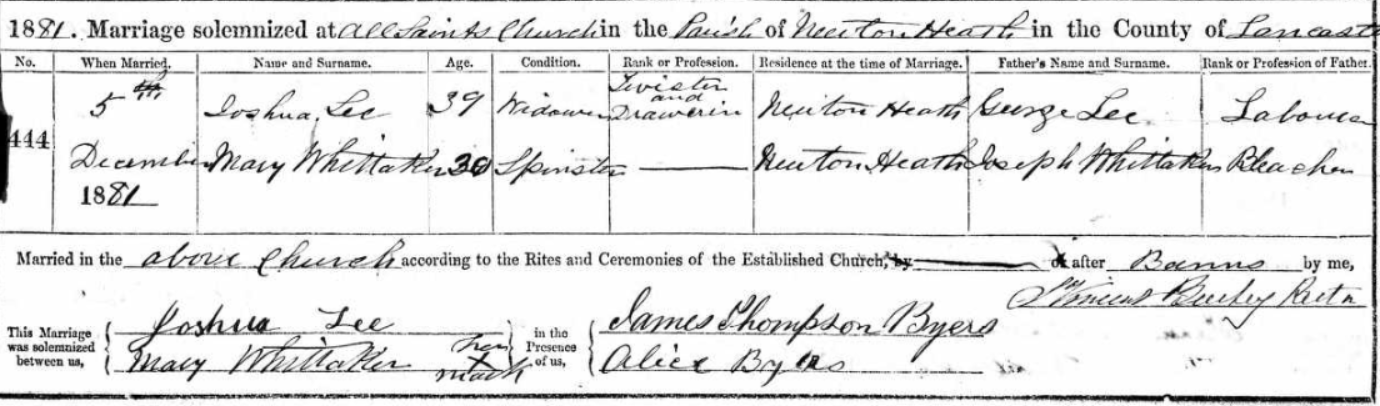 1881. Marriage solemnized at All Saints Church in the Parish of Newton Heath in the County of Lancaster
No. When Married. Name and Surname. Age. Condition. Rank or Profession. Residence at the time of Marriage. Father's Name and Surname. Rank or Profession of Father.
444 5th Joshua Lee 39 Widower Twister and Drawerin Newton Heath George Lee Labourer
December Mary Whittaker 30 Spinster Newton Heath Joseph Whittaker Bleacher
1881
Married in the above Church according to the Rites and Ceremonies of the Established Church, by or after Banns by me,
Rector
This Marriage was solemnized between us, Joshua Lee in the Presence of us, James Thompson Byers
Mary Whittaker her X mark Alice Byers